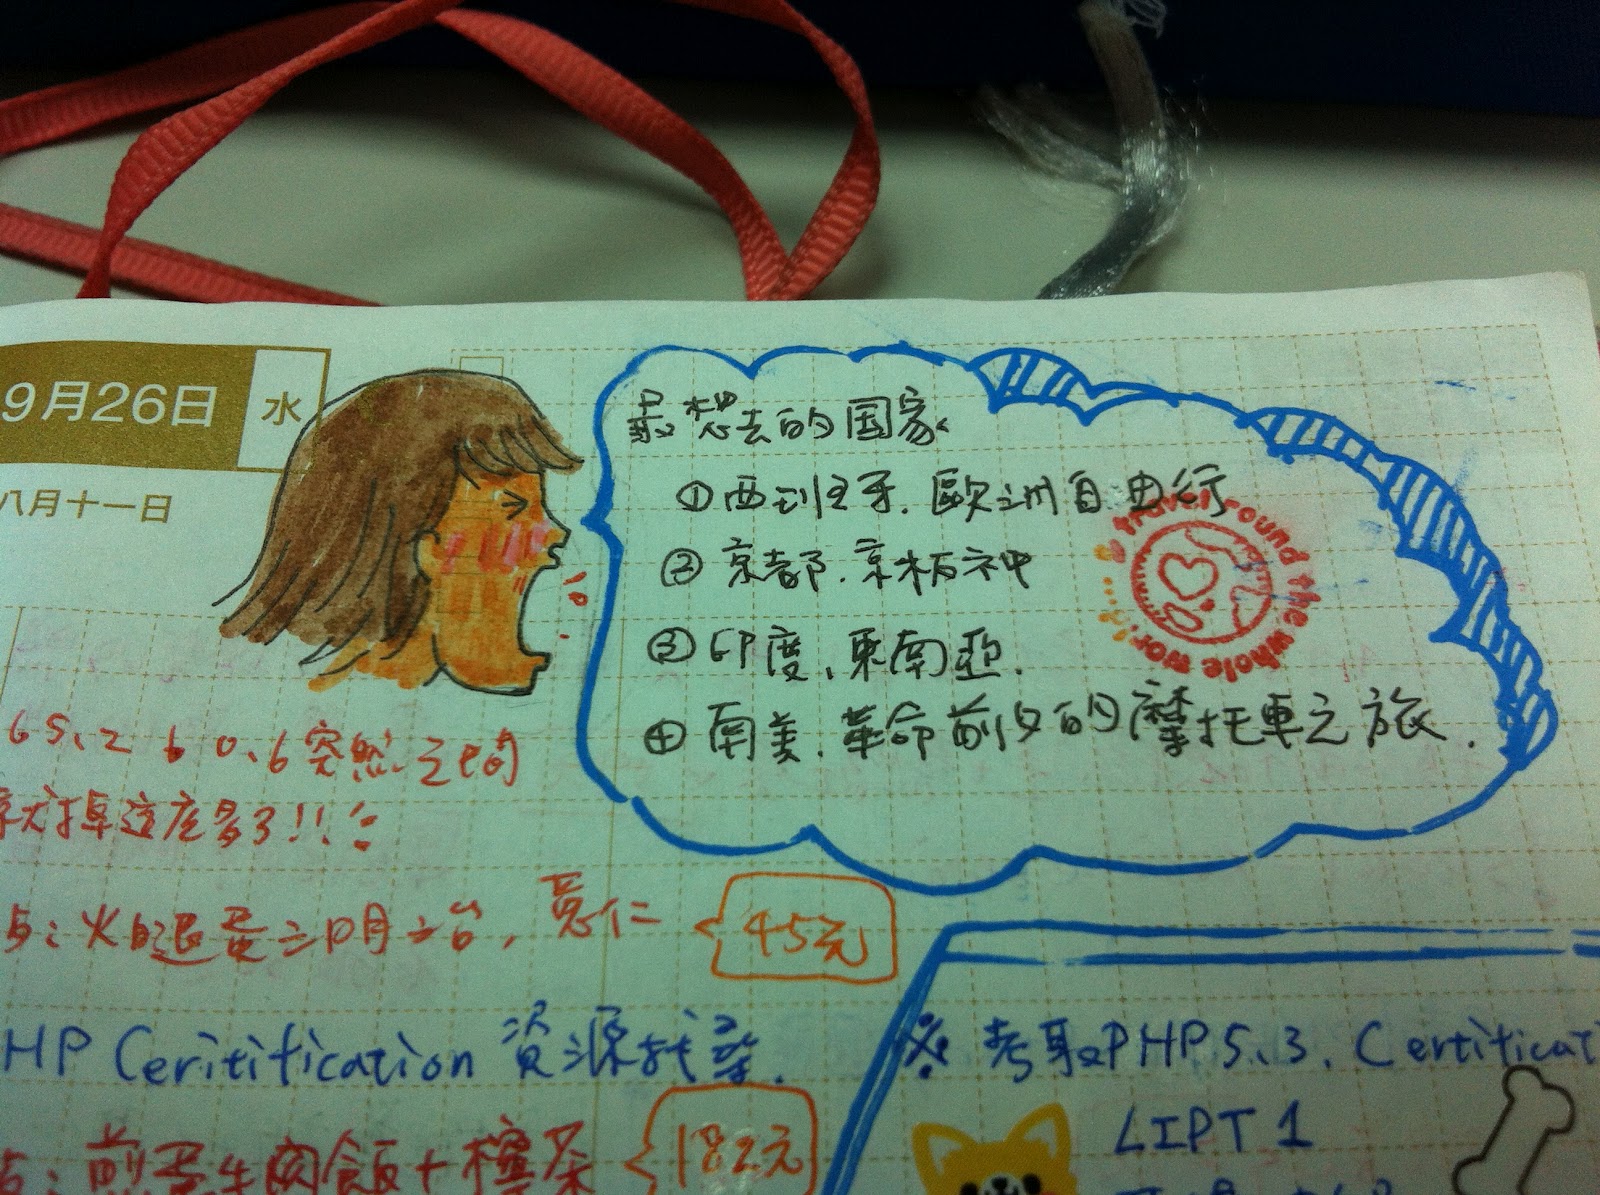 9月26日 水
八月十一日
最想去的国家
①西班牙.歐洲自由行
②京都.京板神
③印度、東南亞.
④南美.革命前夕的摩托車之旅.
travel round the whole wor
65.2 60.6突然之間
就掉這麼多了!!
点:火腿蛋三明治, 薏仁
45元
HP Ceritification 資源找尋.
※ 考取PHP5.3. Certificat
LIPT 1
点:煎蛋牛肉飯+檸茶
182元